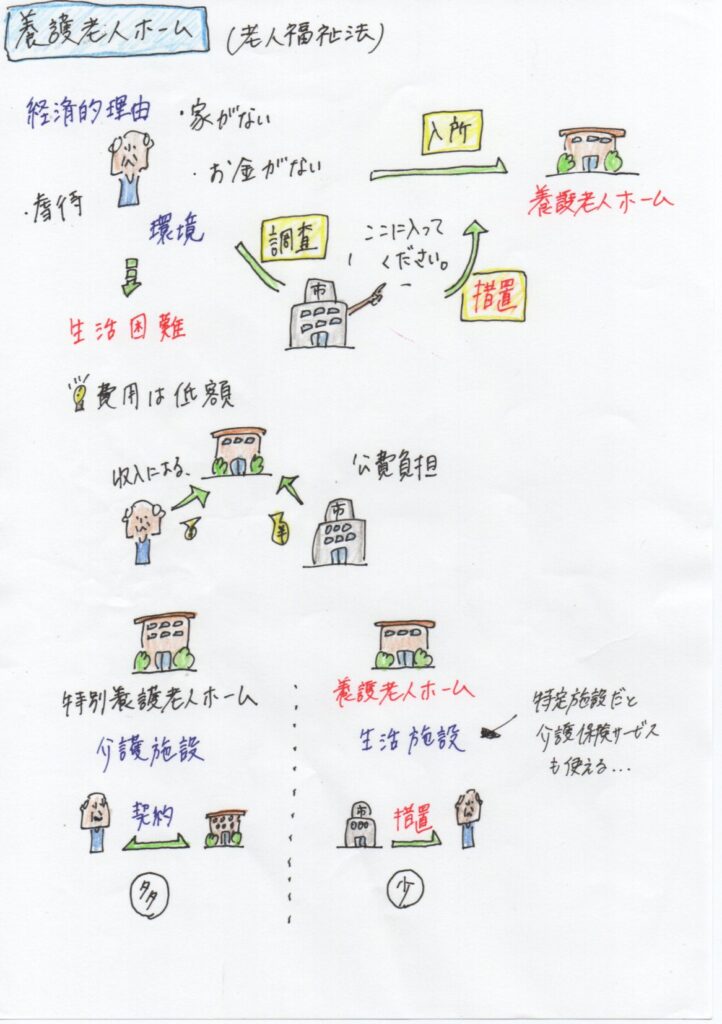 養護老人ホーム (老人福祉法)
経済的理由
・家がない
・お金がない
・虐待
環境
生活困難
調査
市
ここに入って
ください。
入所
養護老人ホーム
措置
費用は低額
収入による、
公費負担
市
特別養護老人ホーム
介護施設
契約
多
養護老人ホーム
生活施設
特定施設だと
介護保険サービス
も使える...
市
措置
少